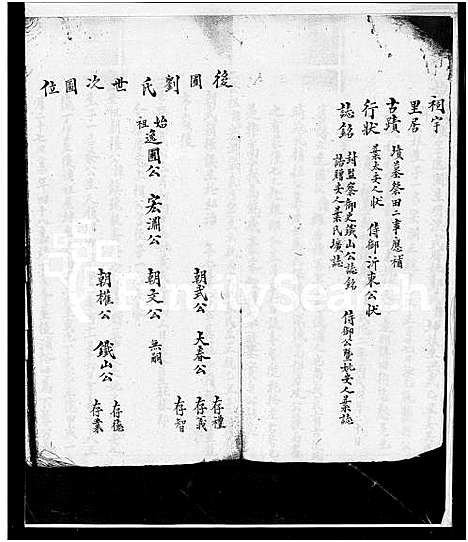 祠宇
里居
古蹟 墳墓祭田二事應補
行狀 葉太安人狀 侍御沂東公狀
誌銘 封監察御史鐵山公誌銘 侍御公暨姚安人葉誌
誥贈安人葉氏壙誌
後圃劉氏世次圖位
始祖逸圃公 宏淵公
朝武公 大春公 存禮 存義 存智
朝文公 無嗣
朝權公 鐵山公 存德 存業
FamilySearch